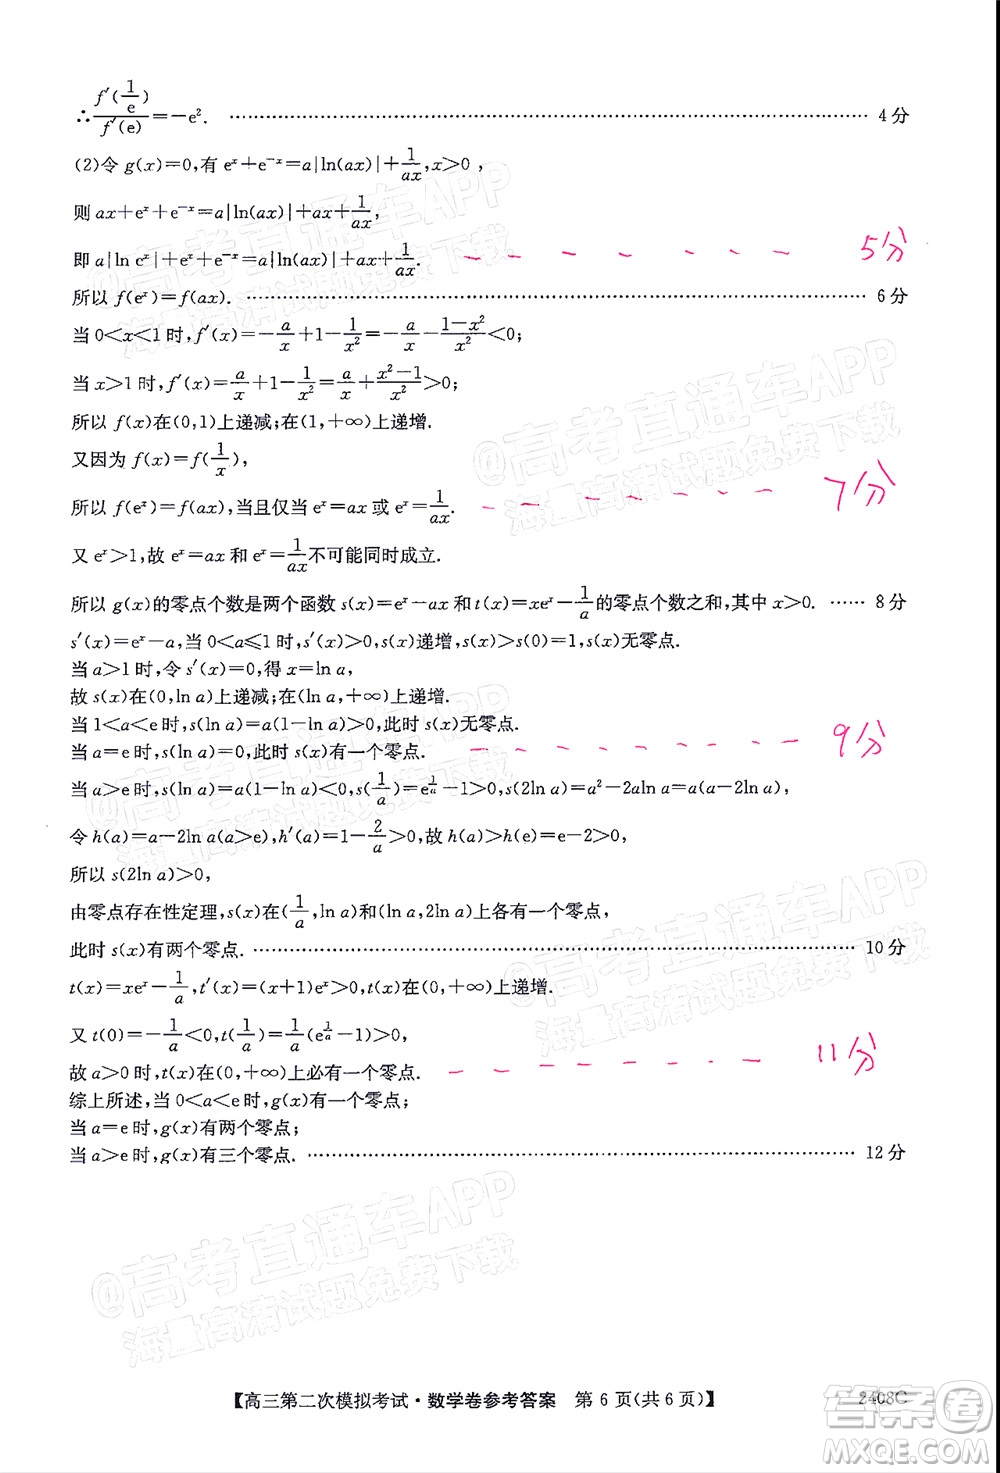 ∴f′(1/e)/f′(e)=-e². ……………… 4 分
(2)令 g(x)=0,有 eˣ+e⁻ˣ=a|ln(ax)|+1/ax,x>0 ,
则 ax+eˣ+e⁻ˣ=a|ln(ax)|+ax+1/ax,
即 a|ln eˣ|+eˣ+e⁻ˣ=a|ln(ax)|+ax+1/ax. 5分
所以 f(eˣ)=f(ax). ……………… 6 分
当 0<x<1 时,f′(x)=-a/x+1-1/x²=-a/x-(1-x²)/x²<0;
当 x>1 时,f′(x)=a/x+1-1/x²=a/x+(x²-1)/x²>0;
所以 f(x)在(0,1)上递减;在(1,+∞)上递增.
又因为 f(x)=f(1/x),
所以 f(eˣ)=f(ax),当且仅当 eˣ=ax 或 eˣ=1/ax. 7分
又 eˣ>1,故 eˣ=ax 和 eˣ=1/ax不可能同时成立.
所以 g(x)的零点个数是两个函数 s(x)=eˣ-ax 和 t(x)=xeˣ-1/a的零点个数之和,其中 x>0. …… 8 分
s′(x)=eˣ-a,当 0<a≤1 时,s′(x)>0,s(x)递增,s(x)>s(0)=1,s(x)无零点.
当 a>1 时,令 s′(x)=0,得 x=ln a,
故 s(x)在(0,ln a)上递减;在(ln a,+∞)上递增.
当 1<a<e 时,s(ln a)=a(1-ln a)>0,此时 s(x)无零点.
当 a=e 时,s(ln a)=0,此时 s(x)有一个零点. 9分
当 a>e 时,s(ln a)=a(1-ln a)<0,s(1/a)=e^(1/a)-1>0,s(2ln a)=a²-2aln a=a(a-2ln a),
令 h(a)=a-2ln a(a>e),h′(a)=1-2/a>0,故 h(a)>h(e)=e-2>0,
所以 s(2ln a)>0,
由零点存在性定理,s(x)在(1/a,ln a)和(ln a,2ln a)上各有一个零点,
此时 s(x)有两个零点. ……………… 10 分
t(x)=xeˣ-1/a,t′(x)=(x+1)eˣ>0,t(x)在(0,+∞)上递增.
又 t(0)=-1/a<0,t(1/a)=1/a(e^(1/a)-1)>0,
故 a>0 时,t(x)在(0,+∞)上必有一个零点. 11分
综上所述,当 0<a<e 时,g(x)有一个零点;
当 a=e 时,g(x)有两个零点;
当 a>e 时,g(x)有三个零点. ……………… 12 分
【高三第二次模拟考试·数学卷参考答案 第 6 页(共 6 页)】 2408C
@高考直通车APP
海量高清试题免费下载
@高考直通车APP
海量高清试题免费下载
@高考直通车APP
海量高清试题免费下载
@高考直通车APP
海量高清试题免费下载
@高考直通车APP
海量高清试题免费下载
答案圈
MXQE.COM